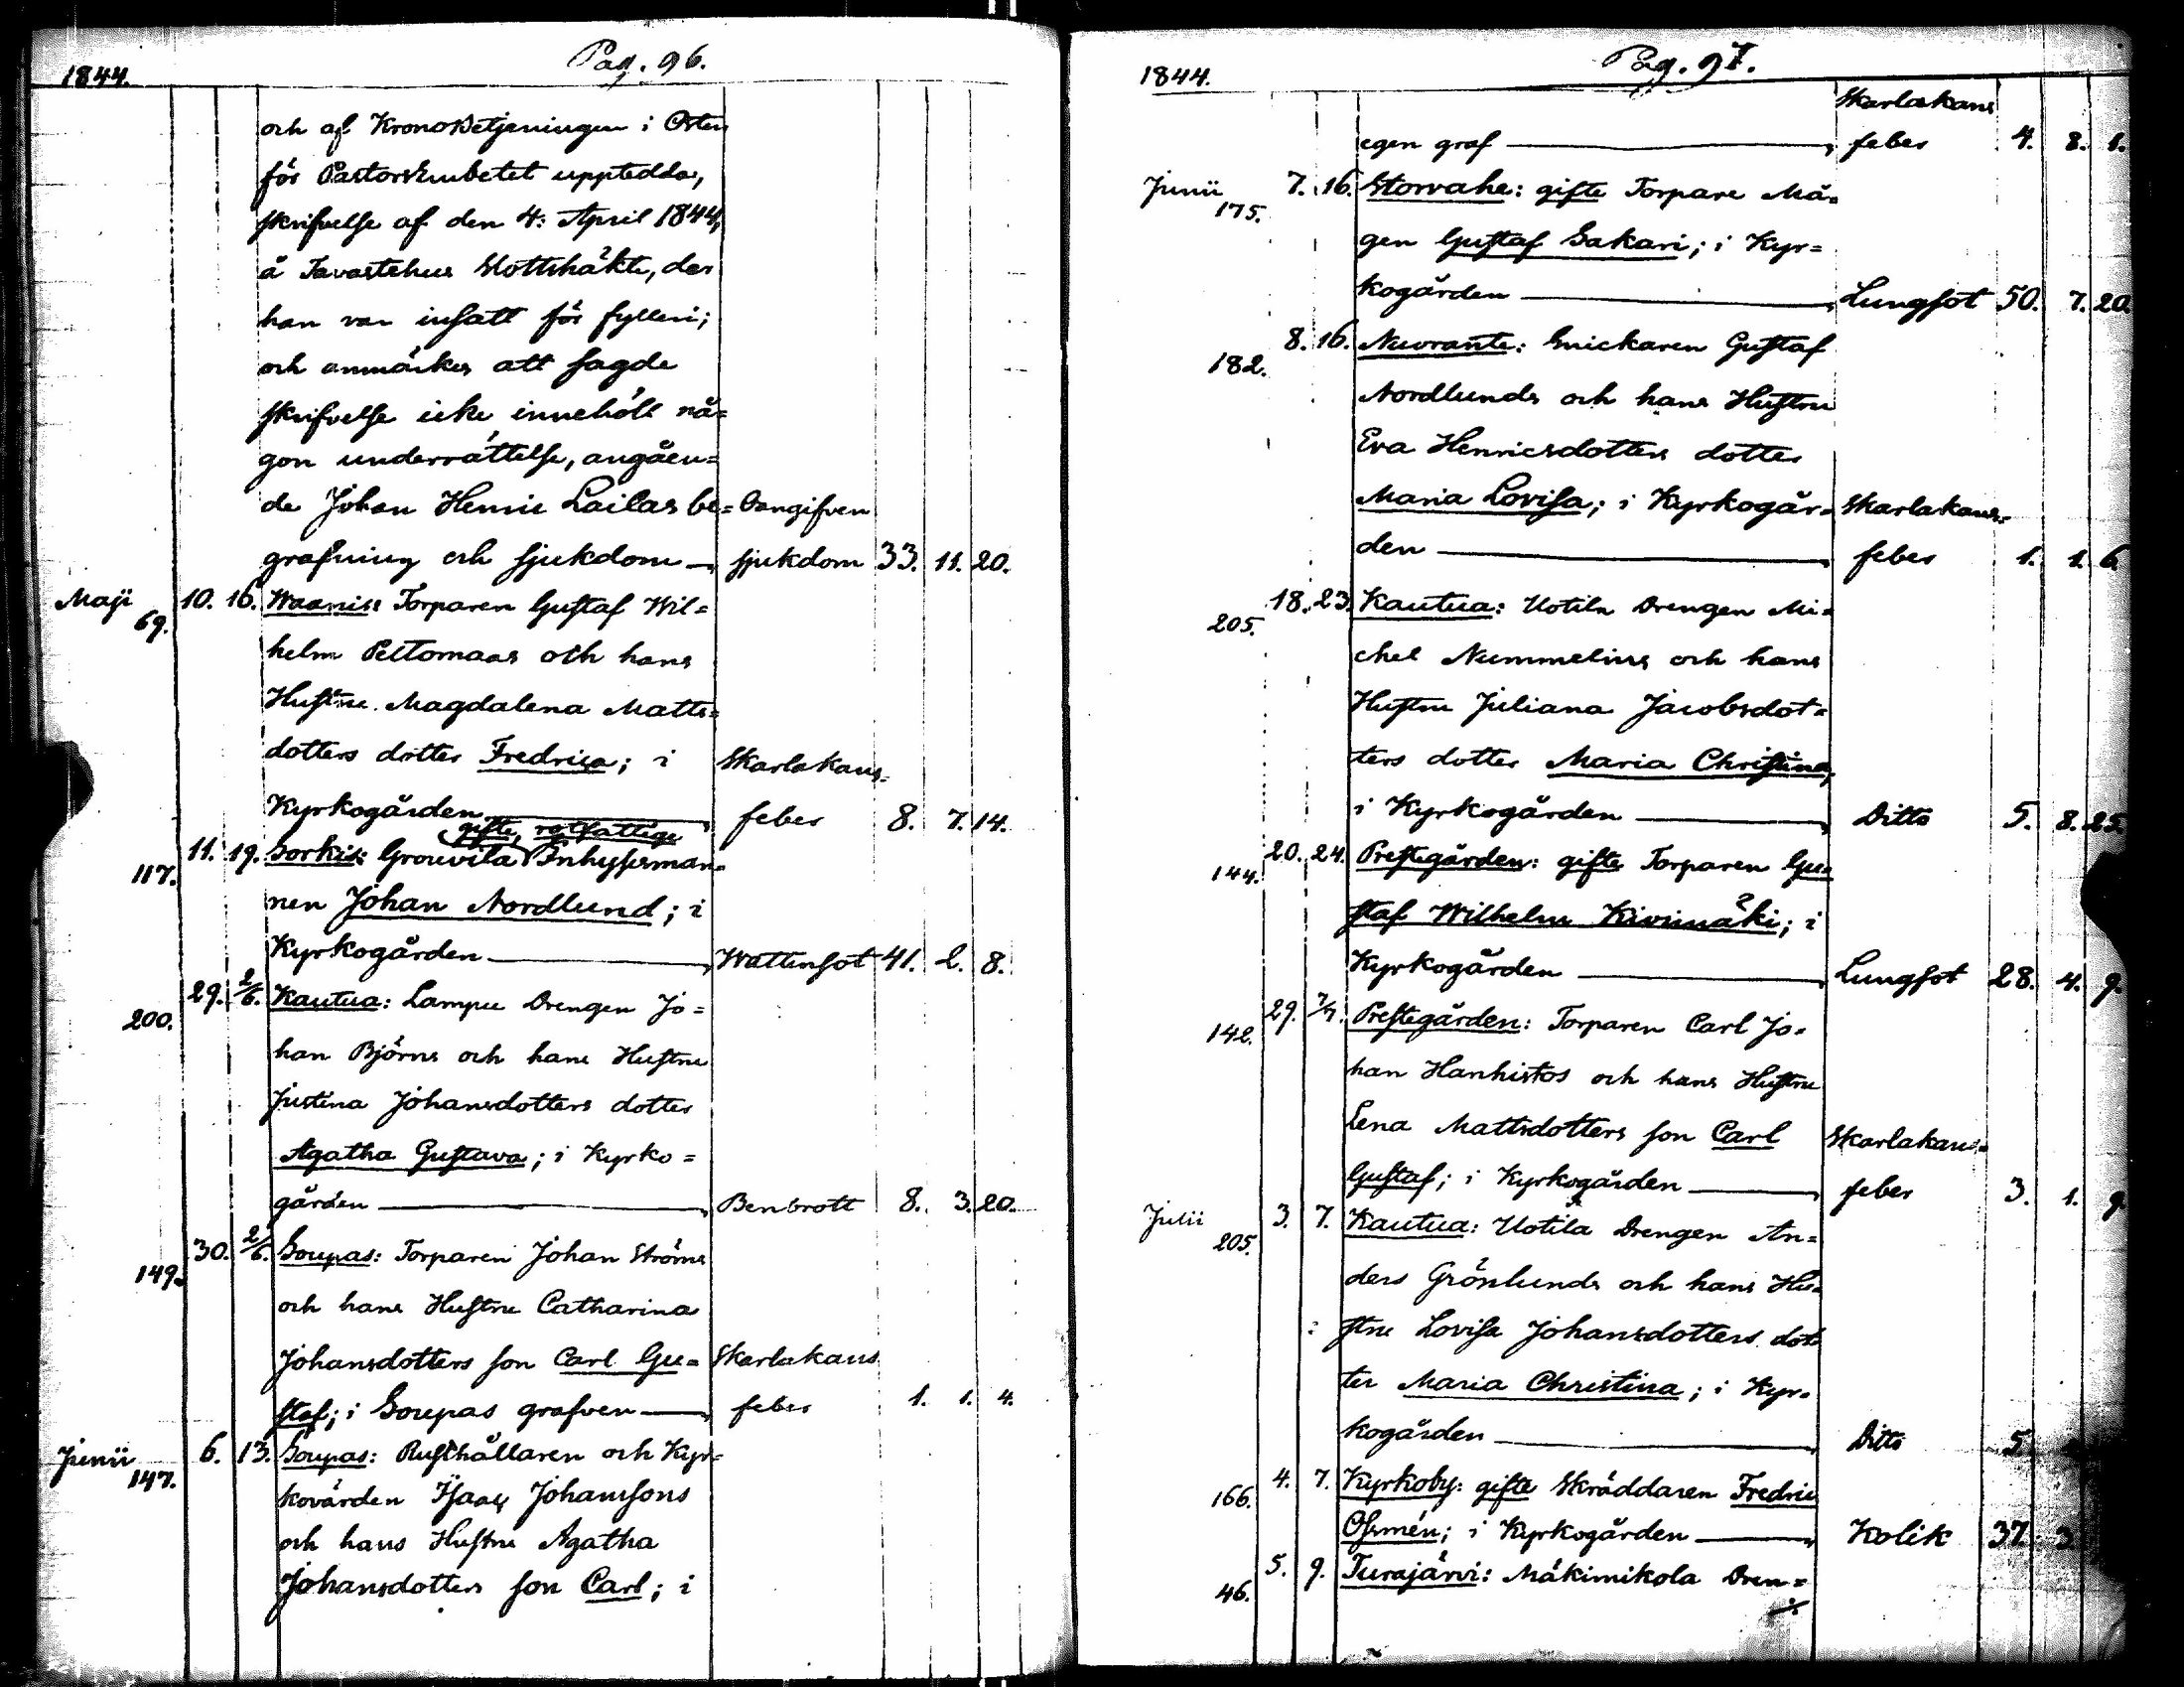 1844.
Pag. 96.
och af Kronobetjeningen i Orten
för Pastorsembetet uppteddas,
skrifvelse af den 4: April 1844,
å Tavastehus Slottshäkte, der
han var insatt för fylleri;
och anmärkes att sagde
skrifvelse icke innehöll nå=
gon underrättelse, angåen=
de Johan Henric Lailas be= Oangifven
grafning och sjukdom — sjukdom 33. 11. 20.
Maji 10. 16. Waanis: Torparen Gustaf Wil=
69.
helm Peltomaas och hans
Hustru Magdalena Matts=
dotters dotter Fredrica; i Skarlakans=
Kyrkogården — feber 8. 7. 14.
gifte, rotfattige
11. 19. Sorkis: Grouvila Inhysesman=
117.
nen Johan Nordlund; i
Kyrkogården — Wattensot 41. 2. 8.
29. 2/6. Kautua: Lampu Drengen Jo=
200.
han Björns och hans Hustru
Justina Johansdotters dotter
Agatha Gustava; i Kyrko=
gården — Benbrott 8. 3. 20.
30. 2/6. Soupas: Torparen Johan Ströms
149.
och hans Hustru Catharina
Johansdotters son Carl Gu= Skarlakans
staf; i Soupas grafven — feber 1. 1. 4.
Junii 6. 13. Soupas: Rusthållaren och Kyr=
147.
kovärden Isaac Johanssons
och hans Hustru Agatha
Johansdotters son Carl; i
1844.
Pag. 97.
Skarlakans
egen graf — feber 4. 8. 1.
Junii 7. 16. Storvahe: gifte Torpare Må=
175.
gen Gustaf Sakari; i Kyr=
kogården — Lungsot 50. 7. 20.
8. 16. Neuvrante: Snickaren Gustaf
182.
Nordlunds och hans Hustru
Eva Henricsdotters dotter
Maria Lovisa; i Kyrkogår= Skarlakans=
den — feber 1. 1. 6.
18. 23. Kautua: Uotila Drengen Mi=
205.
chel Nummelins och hans
Hustru Juliana Jacobsdot=
ters dotter Maria Christina;
i Kyrkogården — Ditto 5. 8. 25.
20. 24. Prestegården: gifte Torparen Gu=
144.
staf Wilhelm Kivimäki; i
Kyrkogården — Lungsot 28. 4. 9.
29. 7/7. Prestegården: Torparen Carl Jo=
142.
han Hanhistos och hans Hustru
Lena Mattsdotters son Carl Skarlakans=
Gustaf; i Kyrkogården — feber 3. 1. 9.
Julii 3. 7. Kautua: Uotila Drengen An=
205.
ders Grönlunds och hans Hu=
stru Lovisa Johansdotters dot
ter Maria Christina; i Kyr=
kogården — Ditto 5.
4. 7. Kyrkoby: gifte Skräddaren Fredric
166.
Ofsmén; i Kyrkogården — Kolik 37. 3.
5. 9. Turajärvi: Mäkimikola Dren=
46.